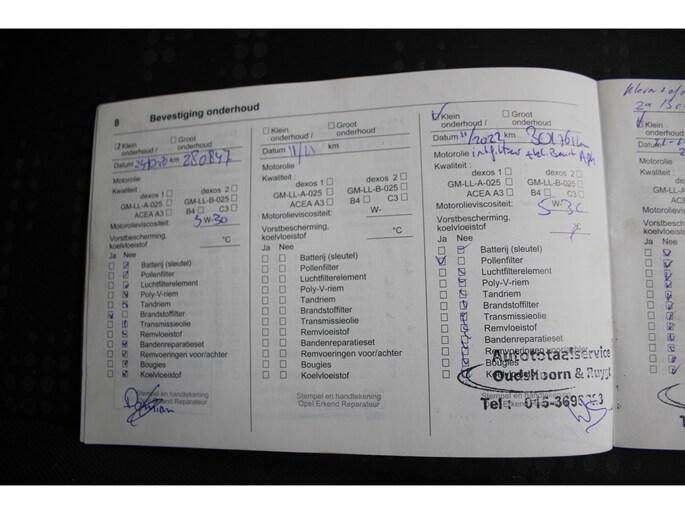 8 Bevestiging onderhoud
Klein onderhoud / Groot onderhoud
Datum km 280847
Motorolie
Kwaliteit : dexos 1 dexos 2
GM-LL-A-025 GM-LL-B-025
ACEA A3 B4 C3
Motorolieviscositeit: 5 W- 30
Vorstbescherming, koelvloeistof °C
Ja Nee
Batterij (sleutel)
Pollenfilter
Luchtfilterelement
Poly-V-riem
Tandriem
Brandstoffilter
Transmissieolie
Remvloeistof
Bandenreparatieset
Remvoeringen voor/achter
Bougies
Koelvloeistof
Stempel en handtekening
Opel Erkend Reparateur
Klein onderhoud / Groot onderhoud
Datum km
Motorolie
Kwaliteit : dexos 1 dexos 2
GM-LL-A-025 GM-LL-B-025
ACEA A3 B4 C3
Motorolieviscositeit: W-
Vorstbescherming, koelvloeistof °C
Ja Nee
Batterij (sleutel)
Pollenfilter
Luchtfilterelement
Poly-V-riem
Tandriem
Brandstoffilter
Transmissieolie
Remvloeistof
Bandenreparatieset
Remvoeringen voor/achter
Bougies
Koelvloeistof
Stempel en handtekening
Opel Erkend Reparateur
Klein onderhoud / Groot onderhoud
Datum 11/2022 km
Motorolie
Kwaliteit : dexos 1 dexos 2
GM-LL-A-025 GM-LL-B-025
ACEA A3 B4 C3
Motorolieviscositeit: 5 W- 30
Vorstbescherming, koelvloeistof °C
Ja Nee
Batterij (sleutel)
Pollenfilter
Luchtfilterelement
Poly-V-riem
Tandriem
Brandstoffilter
Transmissieolie
Remvloeistof
Bandenreparatieset
Remvoeringen voor/achter
Autototaalservice
Bougies
Oudshoorn & Ruygt
Koelvloeistof
Stempel en handtekening
Tel : 015-3695
Opel Erkend Reparateur
Klein
onderhoud
Datum
Motorolie
Kwaliteit
Ja